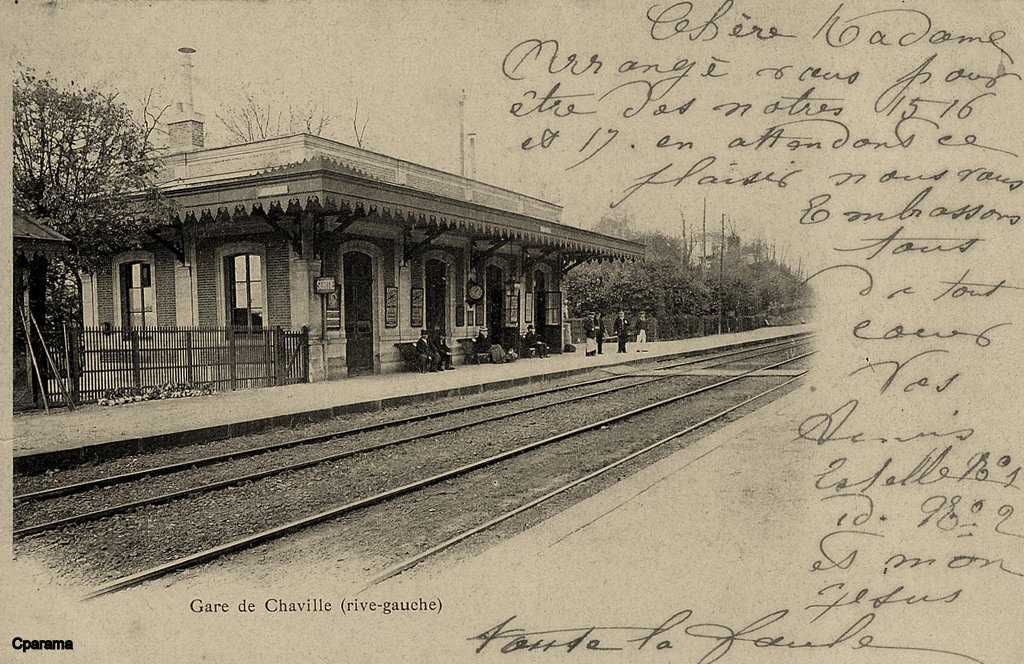 Chère Madame
Arrangé vous pour
être des notres 15 16
et 17. en attendons ce
plaisir nous vous
Embrassons
tous
de tout
coeur
Vos
Amis
Estelle No 1
id. No 2
et mon
Jesus
toute la foule
SORTIE
Gare de Chaville (rive-gauche)
Cparama